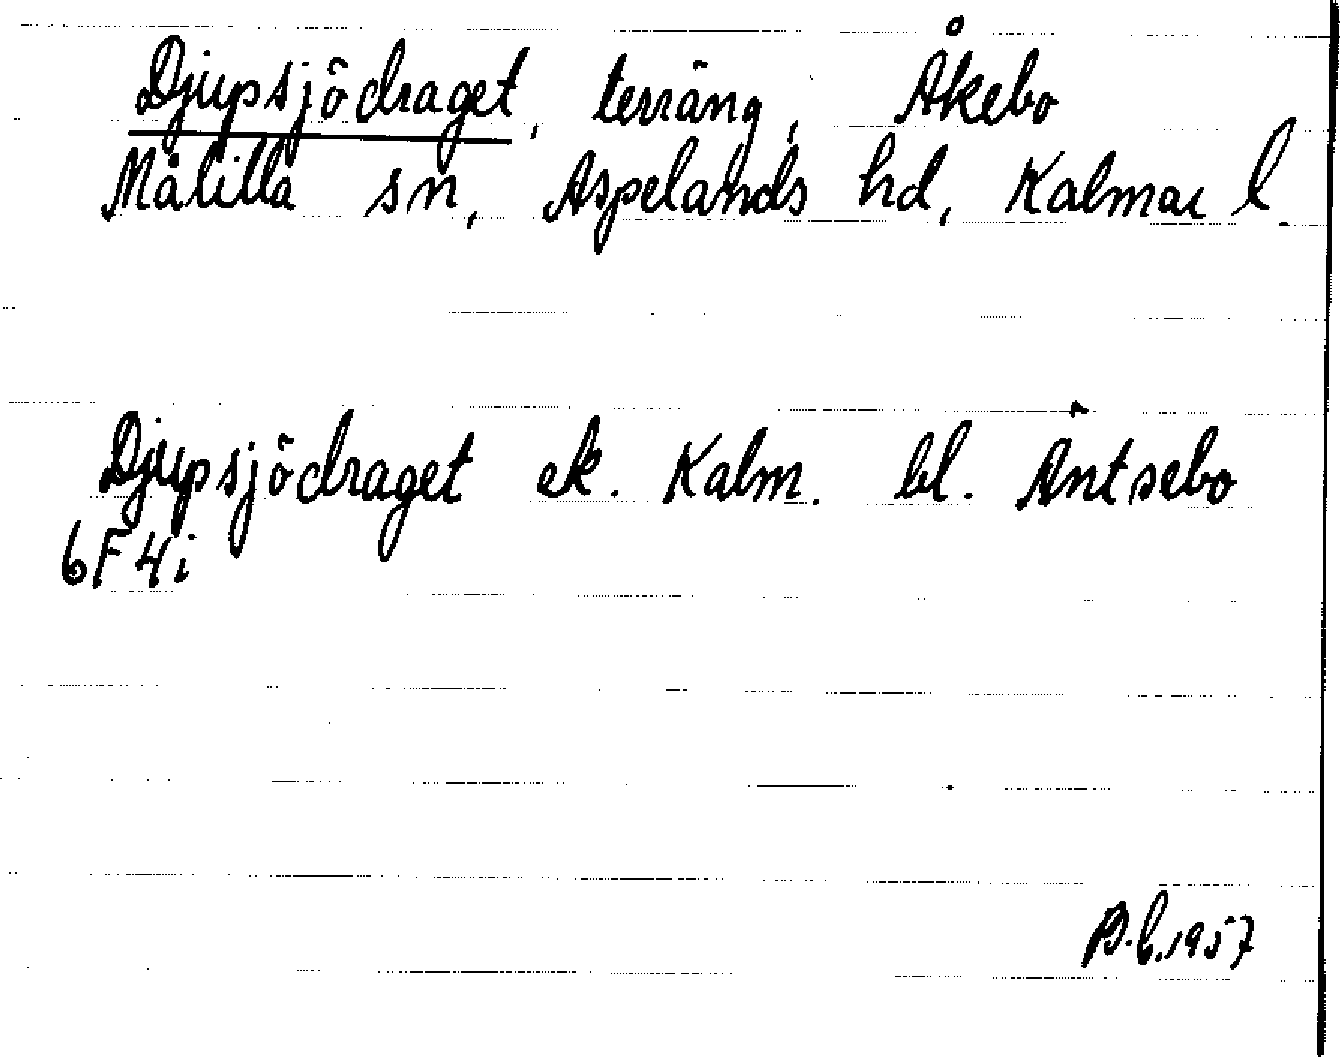 Djupsjödraget, terräng, Åkebo
Målilla sn, Aspelands hd, Kalmar l.
Djupsjödraget ek. Kalm. bl. Äntsebo
6F4i
B.L.1957